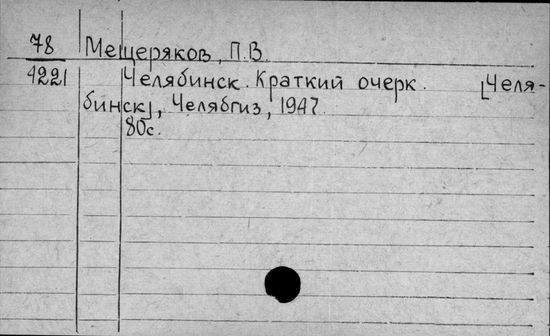 78 Мещеряков, П.В.
4221 Челябинск. Краткий очерк. [Челя-
бинск], Челябгиз, 1947.
80с.